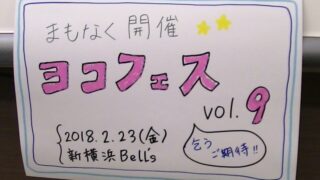 まもなく開催
ヨコフェス
vol.9
2018.2.23(金)
新横浜Bell's
乞う
ご期待!!